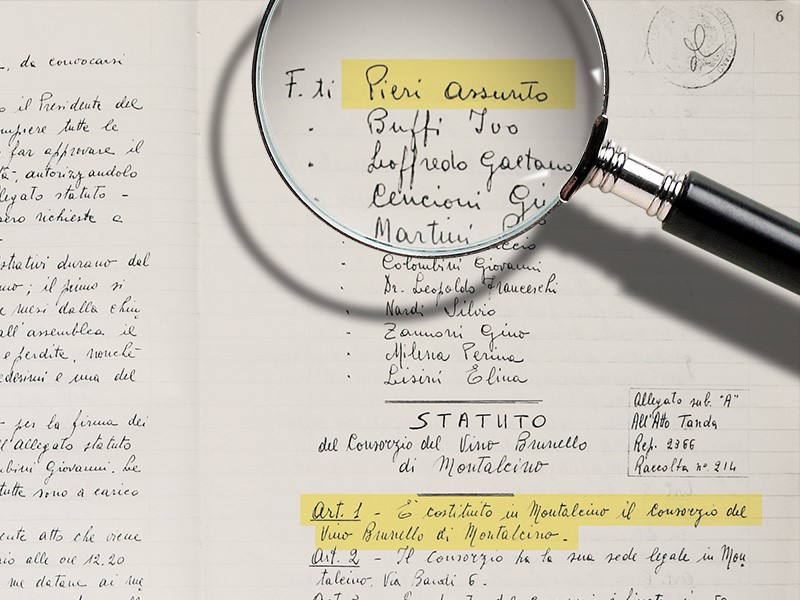 , da convocarsi
o il Presidente del
mpiere tutte le
far approvare il
tà, autorizzandolo
llegato statuto -
ero richieste a
strativi durano dal
no; il primo si
mesi dalla chiu
all'assemblea il
e perdite, nonchè
edesimi e una del
- per la firma dei
l'allegato statuto
mbini Giovanni. Le
tutte sono a carico
ente atto che viene
rio alle ore 12,20
me datane ai me
6
F.ti Pieri Assunto
· Buffi Ivo
· Loffredo Gaetano
· Cencioni Gi
Martini
ccio
· Colombini Giovanni
· Dr. Leopoldo Franceschi
· Nardi Silvio
· Zannoni Gino
· Milena Perina
· Lisini Elina
STATUTO
del Consorzio del Vino Brunello
di Montalcino
Allegato sub. "A"
All'Atto Tanda
Rep. 2366
Raccolta n° 214
Art. 1 - È costituito in Montalcino il Consorzio del
Vino Brunello di Montalcino.
Art. 2 - Il Consorzio ha la sua sede legale in Mon
talcino, Via Bandi 6.